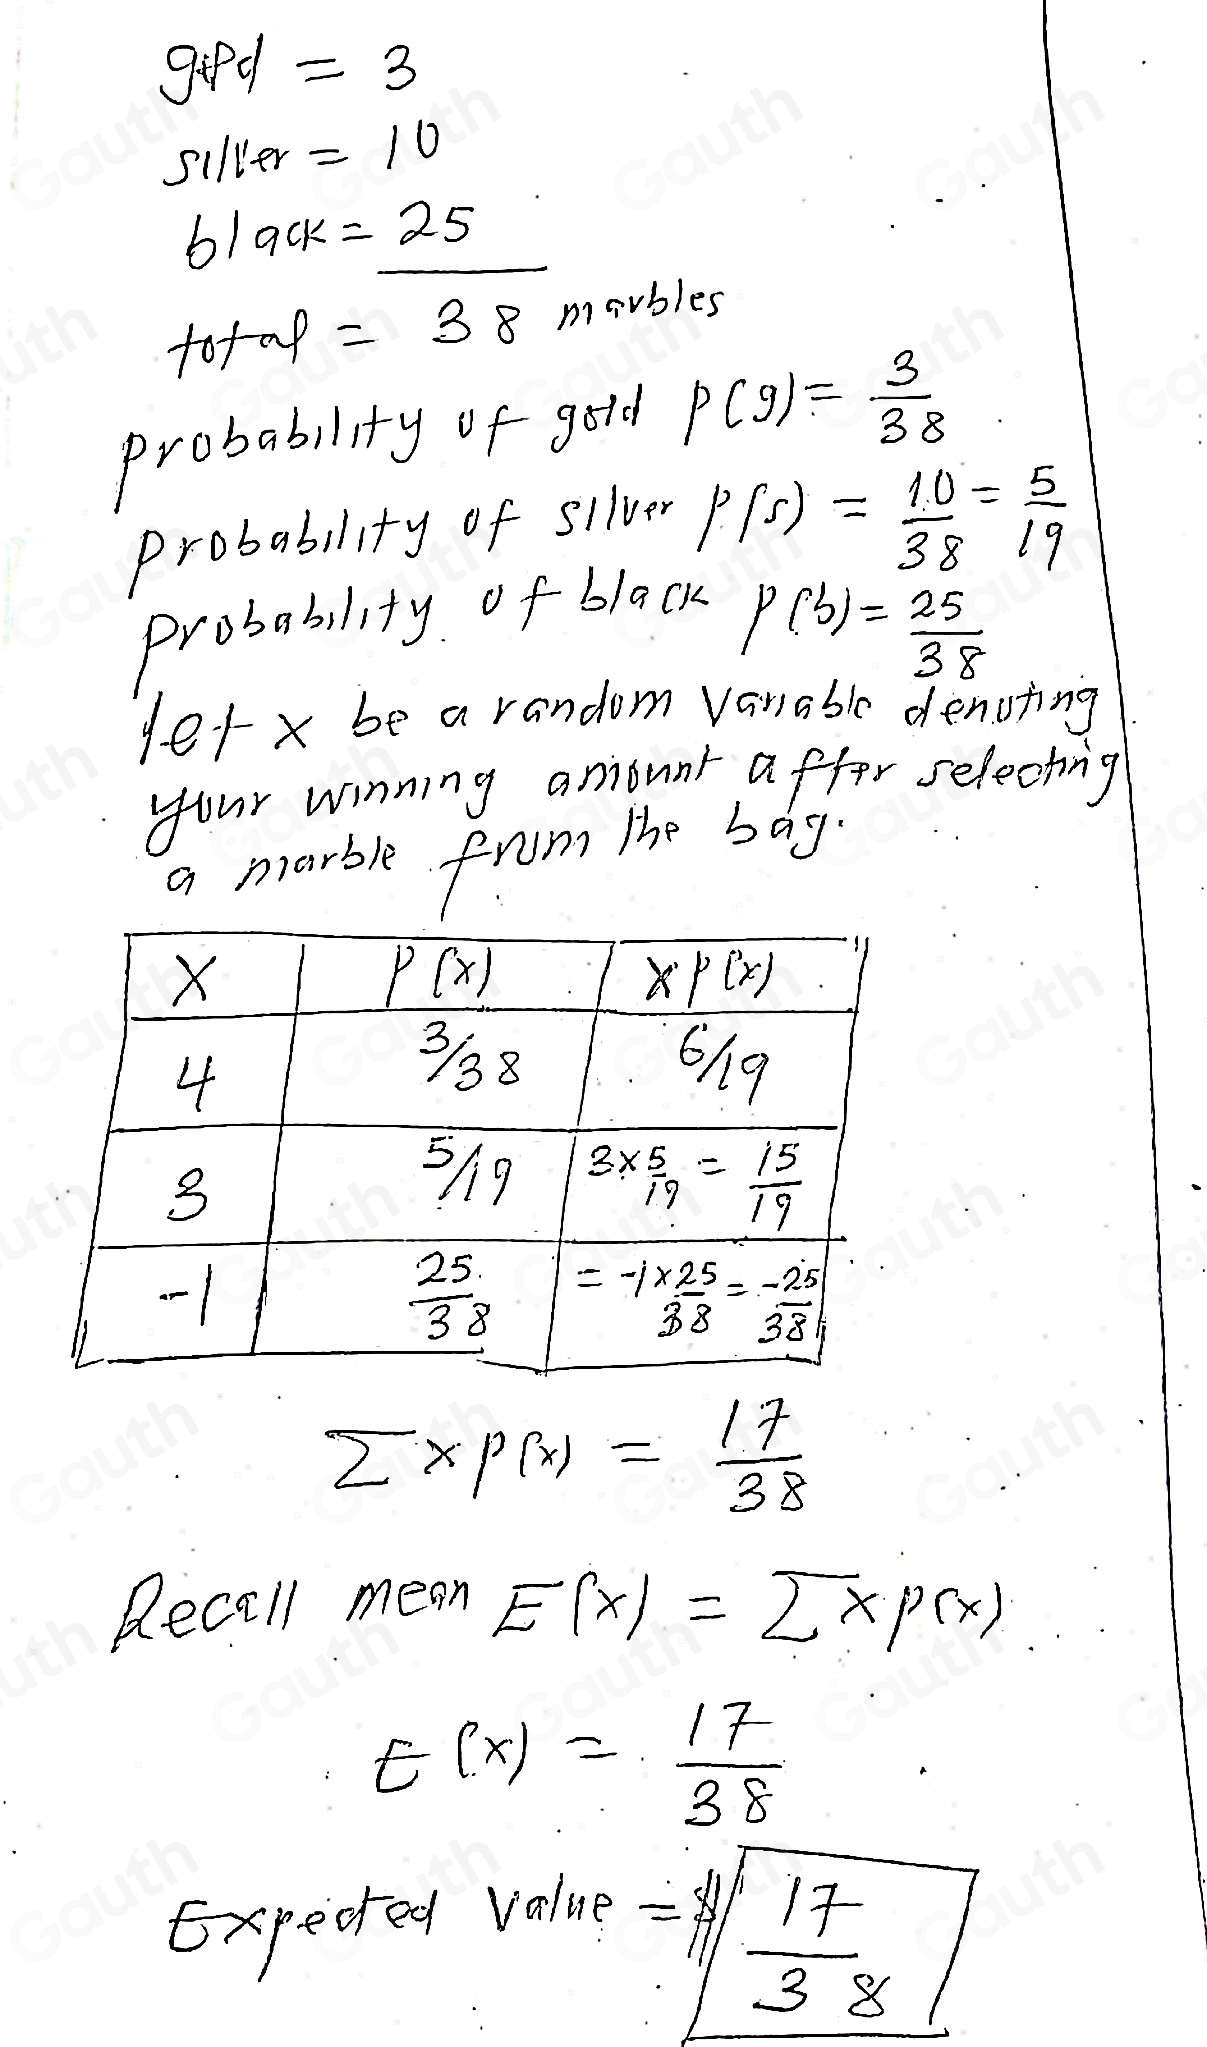 gold = 3
silver = 10
black = 25
total = 38 marbles
probability of gold p(g) = 3/38
probability of silver p(s) = 10/38 = 5/19
probability of black p(b) = 25/38
let x be a random variable denoting
your winning amount after selecting
a marble from the bag.
X P(x) x p(x)
4 3/38 6/19
3 5/19 3 x 5/19 = 15/19
-1 25/38 = -1 x 25/38 = -25/38
Σ x p(x) = 17/38
Recall mean E(x) = Σ x p(x)
E(x) = 17/38
Expected value = $ 17/38